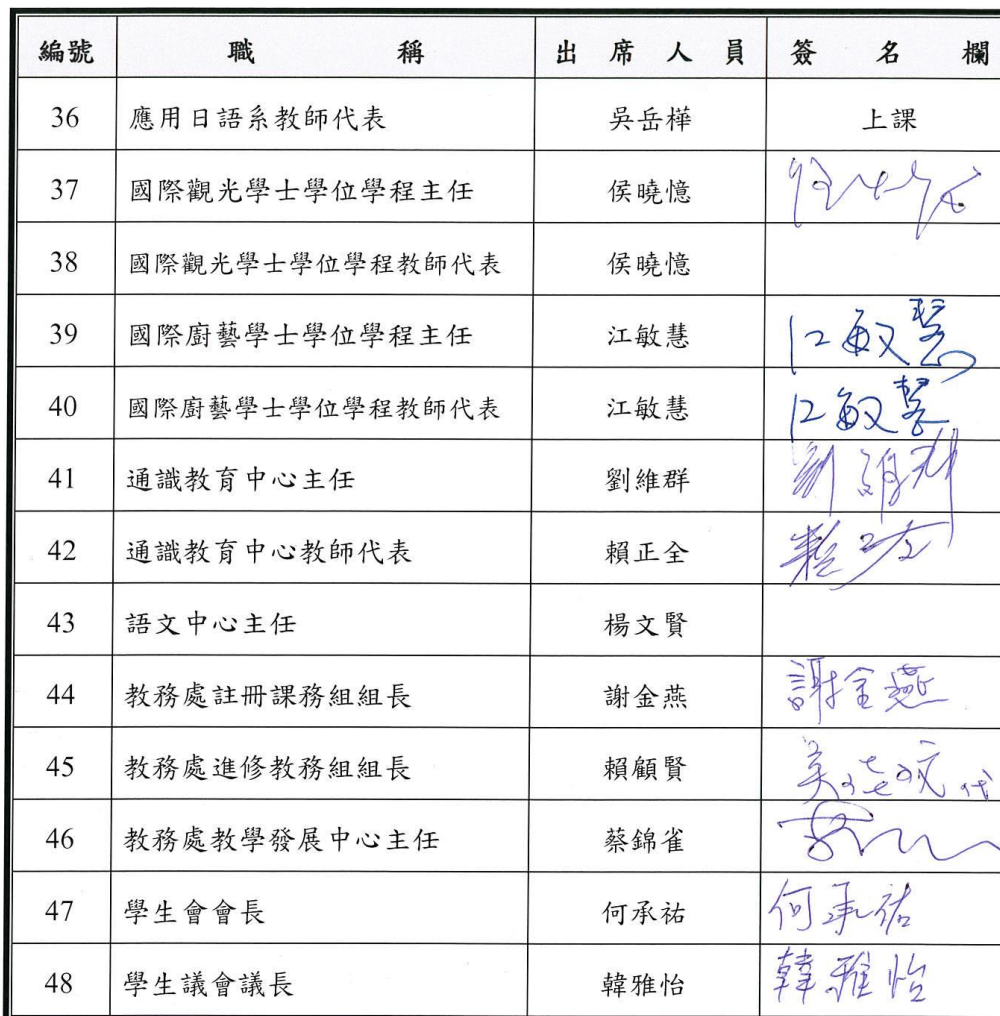 編號 職稱 出席人員 簽名欄
36 應用日語系教師代表 吳岳樺 上課
37 國際觀光學士學位學程主任 侯曉憶
38 國際觀光學士學位學程教師代表 侯曉憶
39 國際廚藝學士學位學程主任 江敏慧 江敏慧
40 國際廚藝學士學位學程教師代表 江敏慧 江敏慧
41 通識教育中心主任 劉維群
42 通識教育中心教師代表 賴正全
43 語文中心主任 楊文賢
44 教務處註冊課務組組長 謝金燕 謝金燕
45 教務處進修教務組組長 賴顧賢
46 教務處教學發展中心主任 蔡錦雀
47 學生會會長 何承祐 何承祐
48 學生議會議長 韓雅怡 韓雅怡